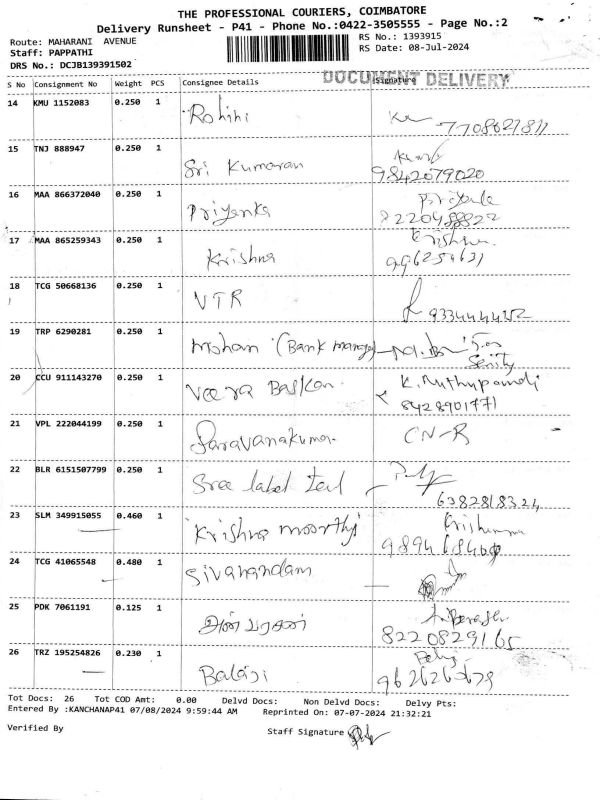 THE PROFESSIONAL COURIERS, COIMBATORE
Delivery Runsheet - P41 - Phone No.:0422-3505555 - Page No.:2
Route: MAHARANI AVENUE
RS No.: 1393915
Staff: PAPPATHI
RS Date: 08-Jul-2024
DRS No.: DCJB139391502
DOCUMENT DELIVERY
S No Consignment No Weight PCS Consignee Details Signature
14 KMU 1152083 0.250 1 Rohini
7708621811
15 TNJ 888947 0.250 1 Sri Kumaran
9842079020
16 MAA 866372040 0.250 1 Priyanka
8220488822
17 MAA 865259343 0.250 1 Krishna Krishna
996254631
18 TCG 50668136 0.250 1 VTR
19 TRP 6290281 0.250 1 mohan (Bank manager)
20 CCU 911143270 0.250 1 Veera Baskar K. Muthupandi
8428901771
21 VPL 222044199 0.250 1 Saravanakumar CN-R
22 BLR 6151507799 0.250 1 Sree label
6382818324
23 SLM 349915055 0.460 1 Krishna moorthy
24 TCG 41065548 0.480 1 Sivanandam
25 PDK 7061191 0.125 1 அன்பரசன்
8220829165
26 TRZ 195254826 0.230 1 Balaji
Tot Docs: 26 Tot COD Amt: 0.00 Delvd Docs: Non Delvd Docs: Delvy Pts:
Entered By :KANCHANAP41 07/08/2024 9:59:44 AM Reprinted On: 07-07-2024 21:32:21
Verified By Staff Signature